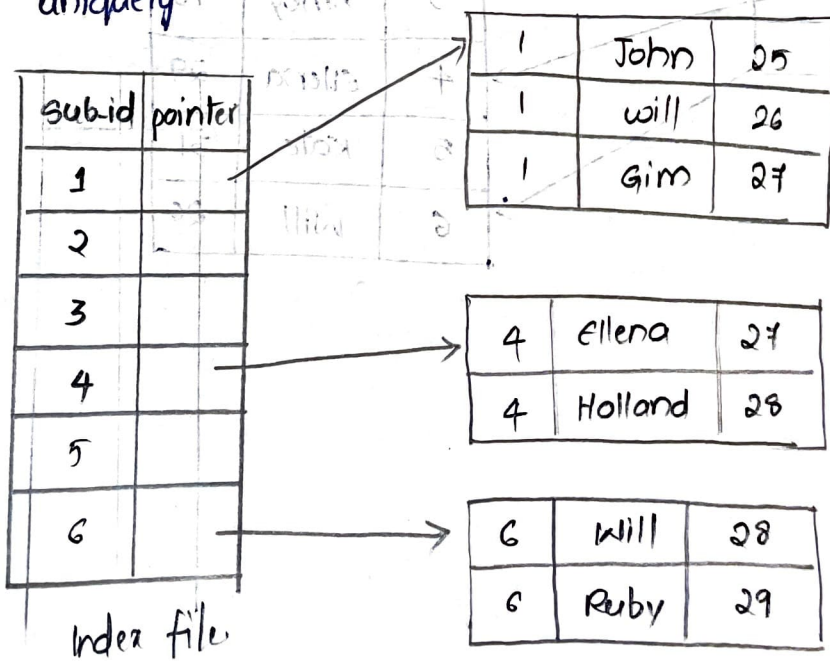 uniquely
sub-id pointer
1
2
3
4
5
6
Index file
1 John 25
1 will 26
1 Gim 27
4 Ellena 27
4 Holland 28
6 Will 28
6 Ruby 29